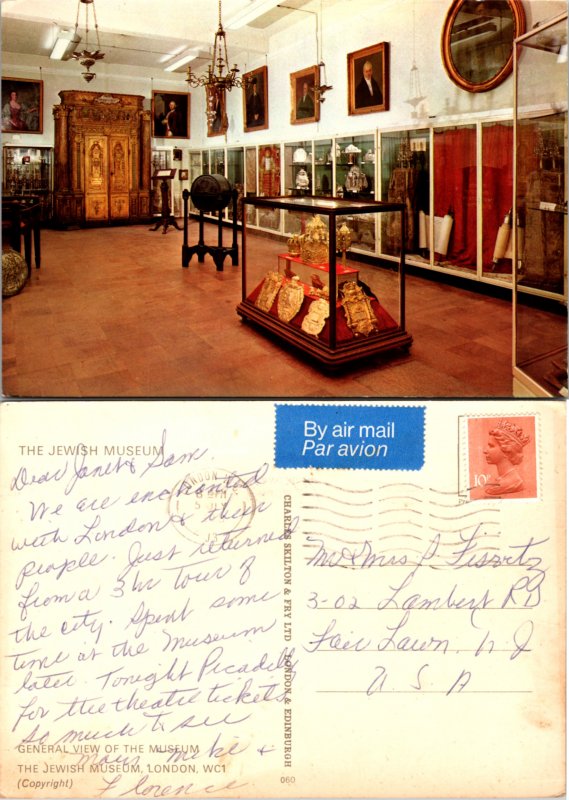 THE JEWISH MUSEUM
Dear Janet & Sam.
We are enchanted
with London & their
people. Just returned
from a 3 hr Tour of
the city. Spent some
time at the Museum
later. Tonight Picadilly
for the theatre tickets
so much to see
Mike &
Florence
GENERAL VIEW OF THE MUSEUM
THE JEWISH MUSEUM, LONDON, WC1
(Copyright)
CHARLES SKILTON & FRY LTD LONDON & EDINBURGH
060
By air mail
Par avion
10P
Mr & Mrs
3-02 Lambert RD
Fair Lawn, N J
U.S A